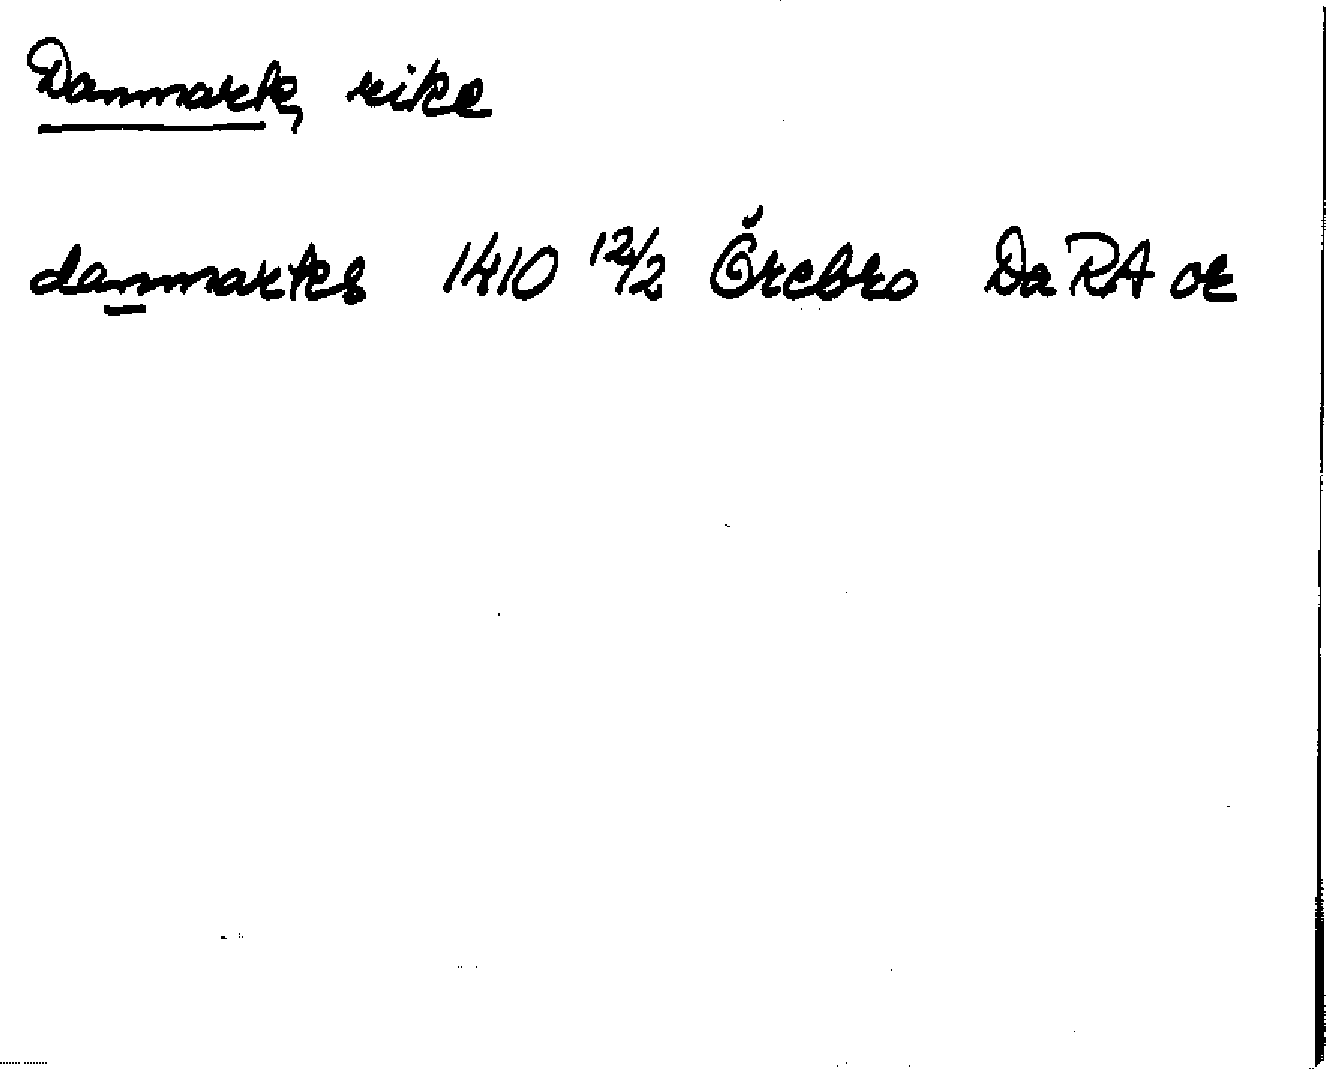 Danmark, rike
danmarkes 1410 12/2 Örebro Da RA or